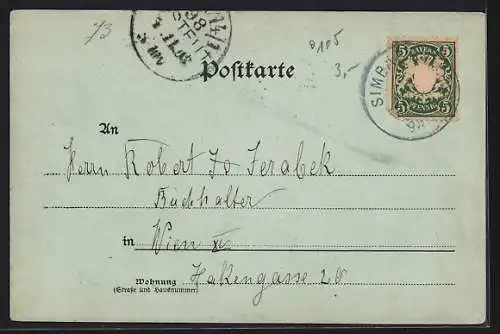 73
98
0,105
3,-
Postkarte
BAYERN
5 5
PFENNIG
SIMB
98
An
Herrn Robert Jo Jerabek
Buchhalter
in Wien XV
Wohnung
(Straße und Hausnummer)
Hakengasse 20